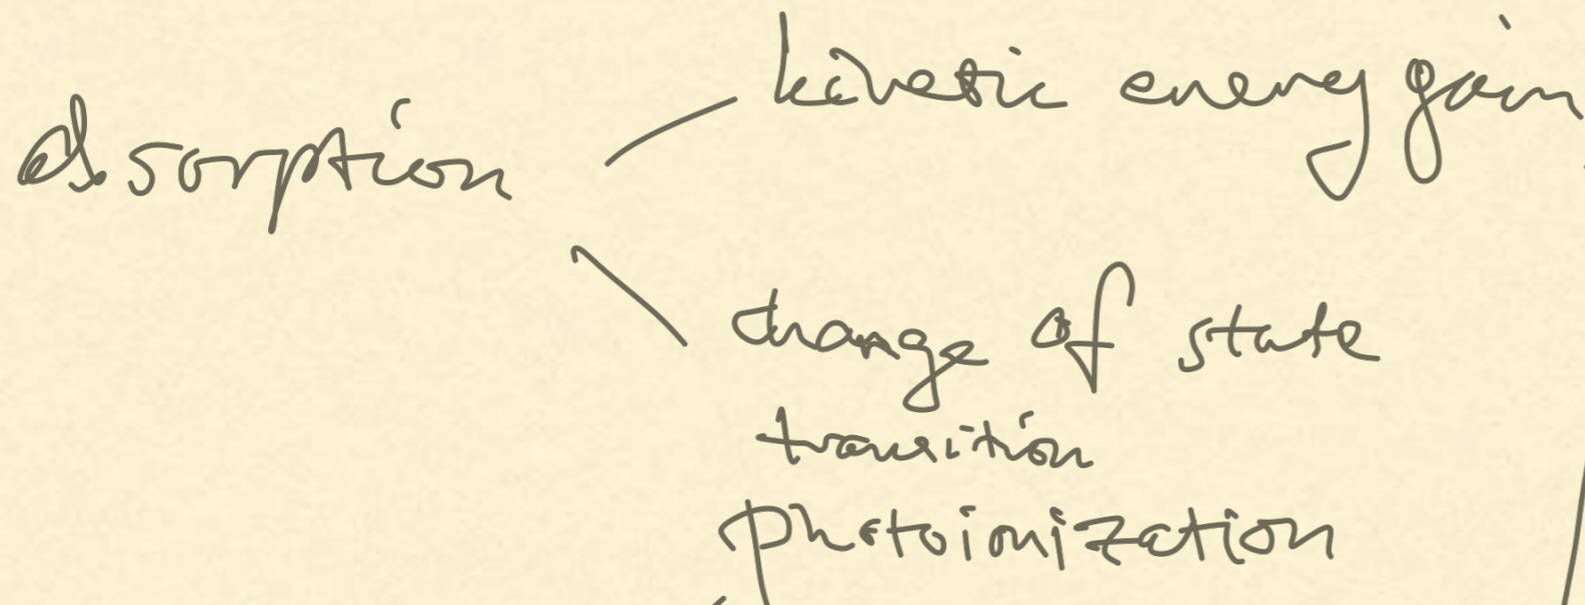 absorption
kinetic energy gain
change of state
transition
photoionization